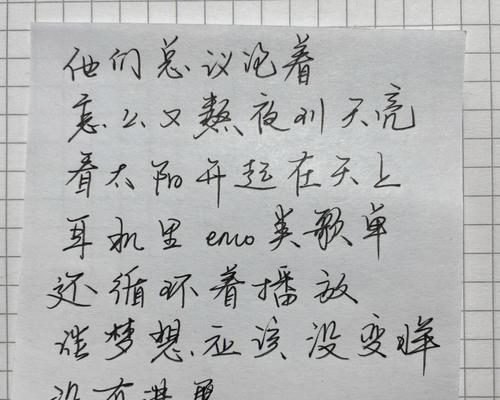 他们总议论着
怎么又熬夜到天亮
看太阳升起在天上
耳机里emo类歌单
还循环着播放
谈梦想应该没变样
没有